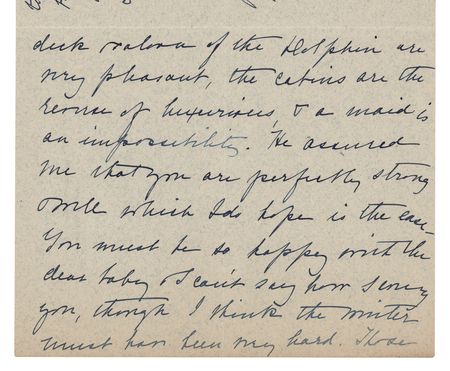 deck saloon of the Dolphin are
very pleasant, the cabins are the
reverse of luxurious, & a maid is
an impossibility. He assured
me that you are perfectly strong
& well which I do hope is the case
You must be so happy with the
dear baby & I can't say how I envy
you, though I think the winter
must have been very hard. Those